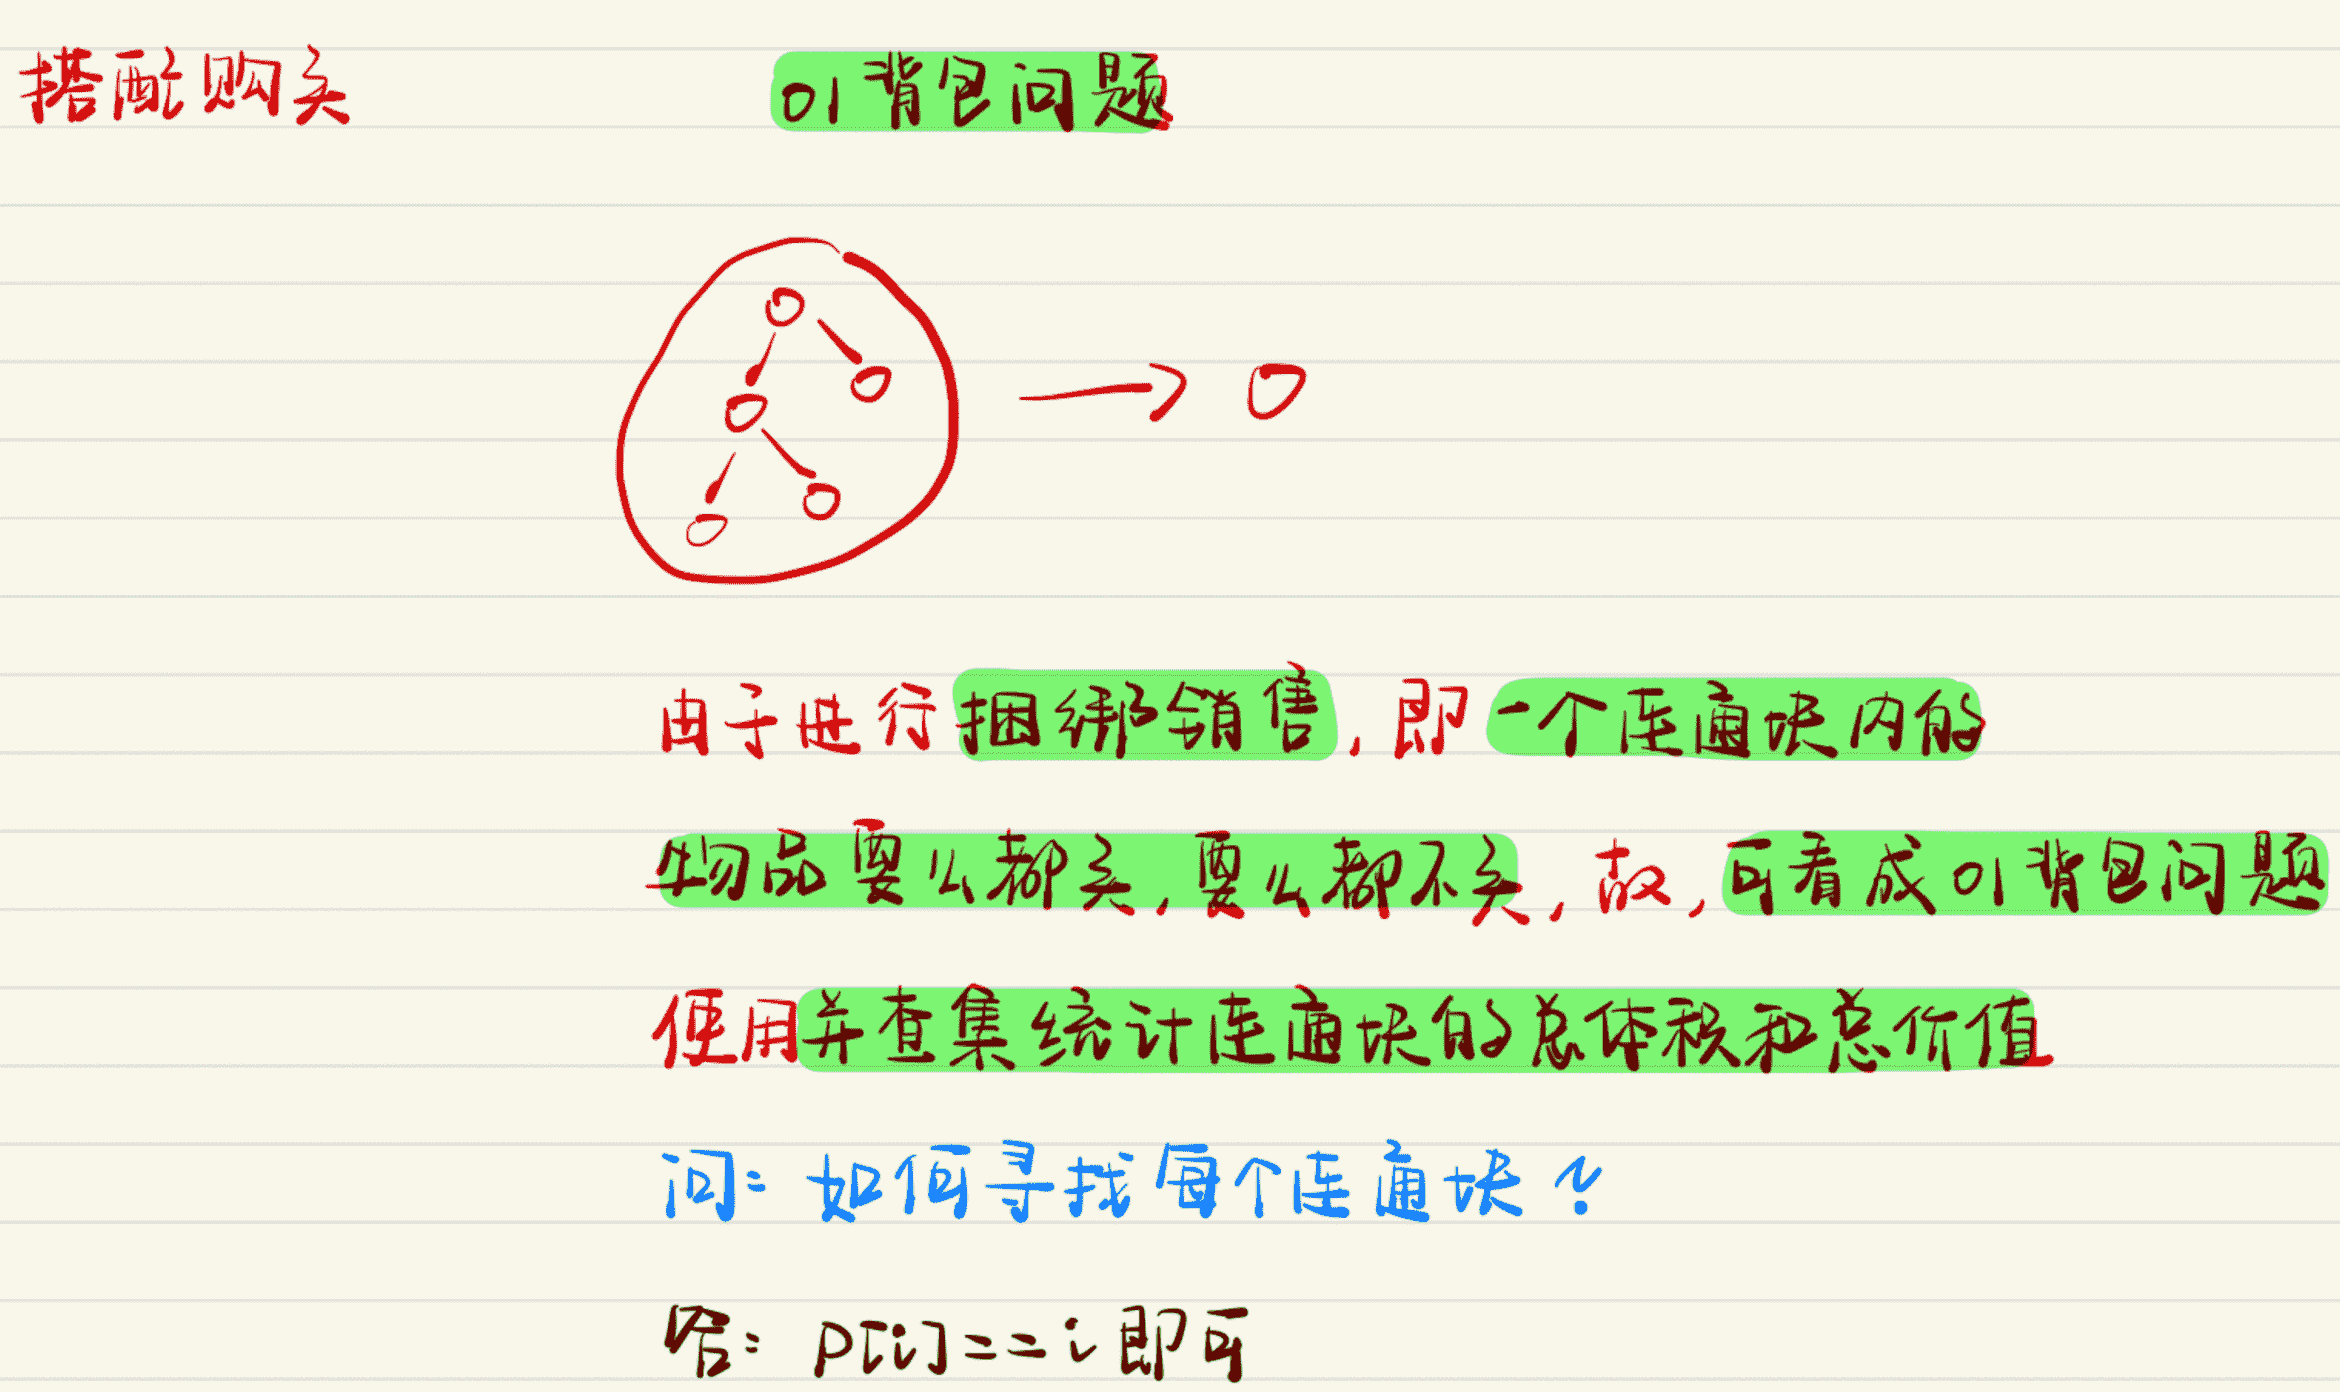 搭配购买
01背包问题
由于进行捆绑销售,即一个连通块内的
物品要么都买,要么都不买,故,可看成01背包问题
使用并查集统计连通块的总体积和总价值
问:如何寻找每个连通块?
答:p[i]==i即可